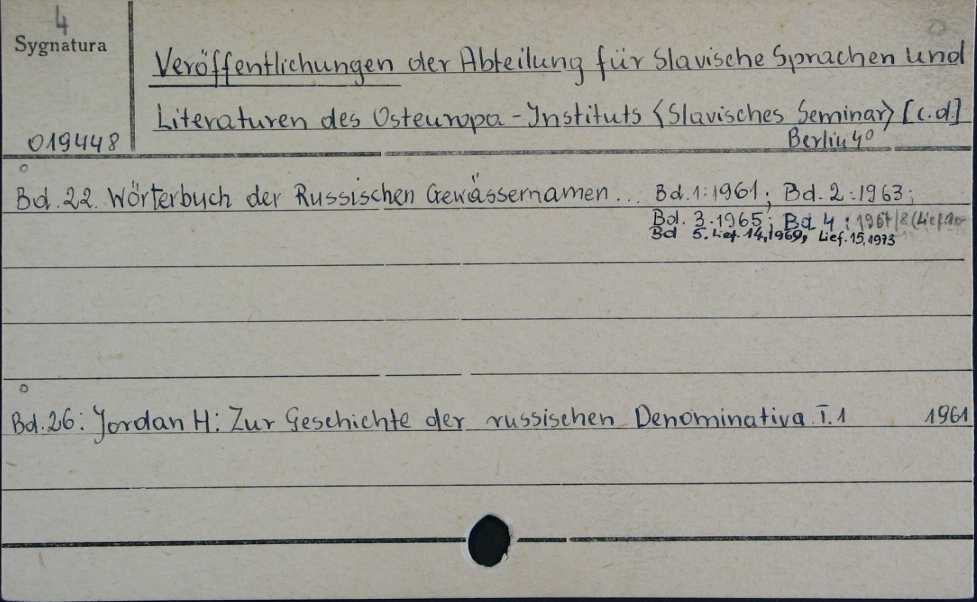 4
Sygnatura
019448
Veröffentlichungen der Abteilung für Slavische Sprachen und
Literaturen des Osteuropa-Instituts <Slavisches Seminar> [c.d.]
Berlin 4°
Bd. 22. Wörterbuch der Russischen Gewässernamen... Bd. 1: 1961; Bd. 2: 1963;
Bd. 3. 1965; Bd 4: 1967/8 (Lief.
Bd 5. Lief. 14, 1969, Lief. 15, 1973
Bd. 26: Jordan H: Zur Geschichte der russischen Denominativa. T. 1 1961